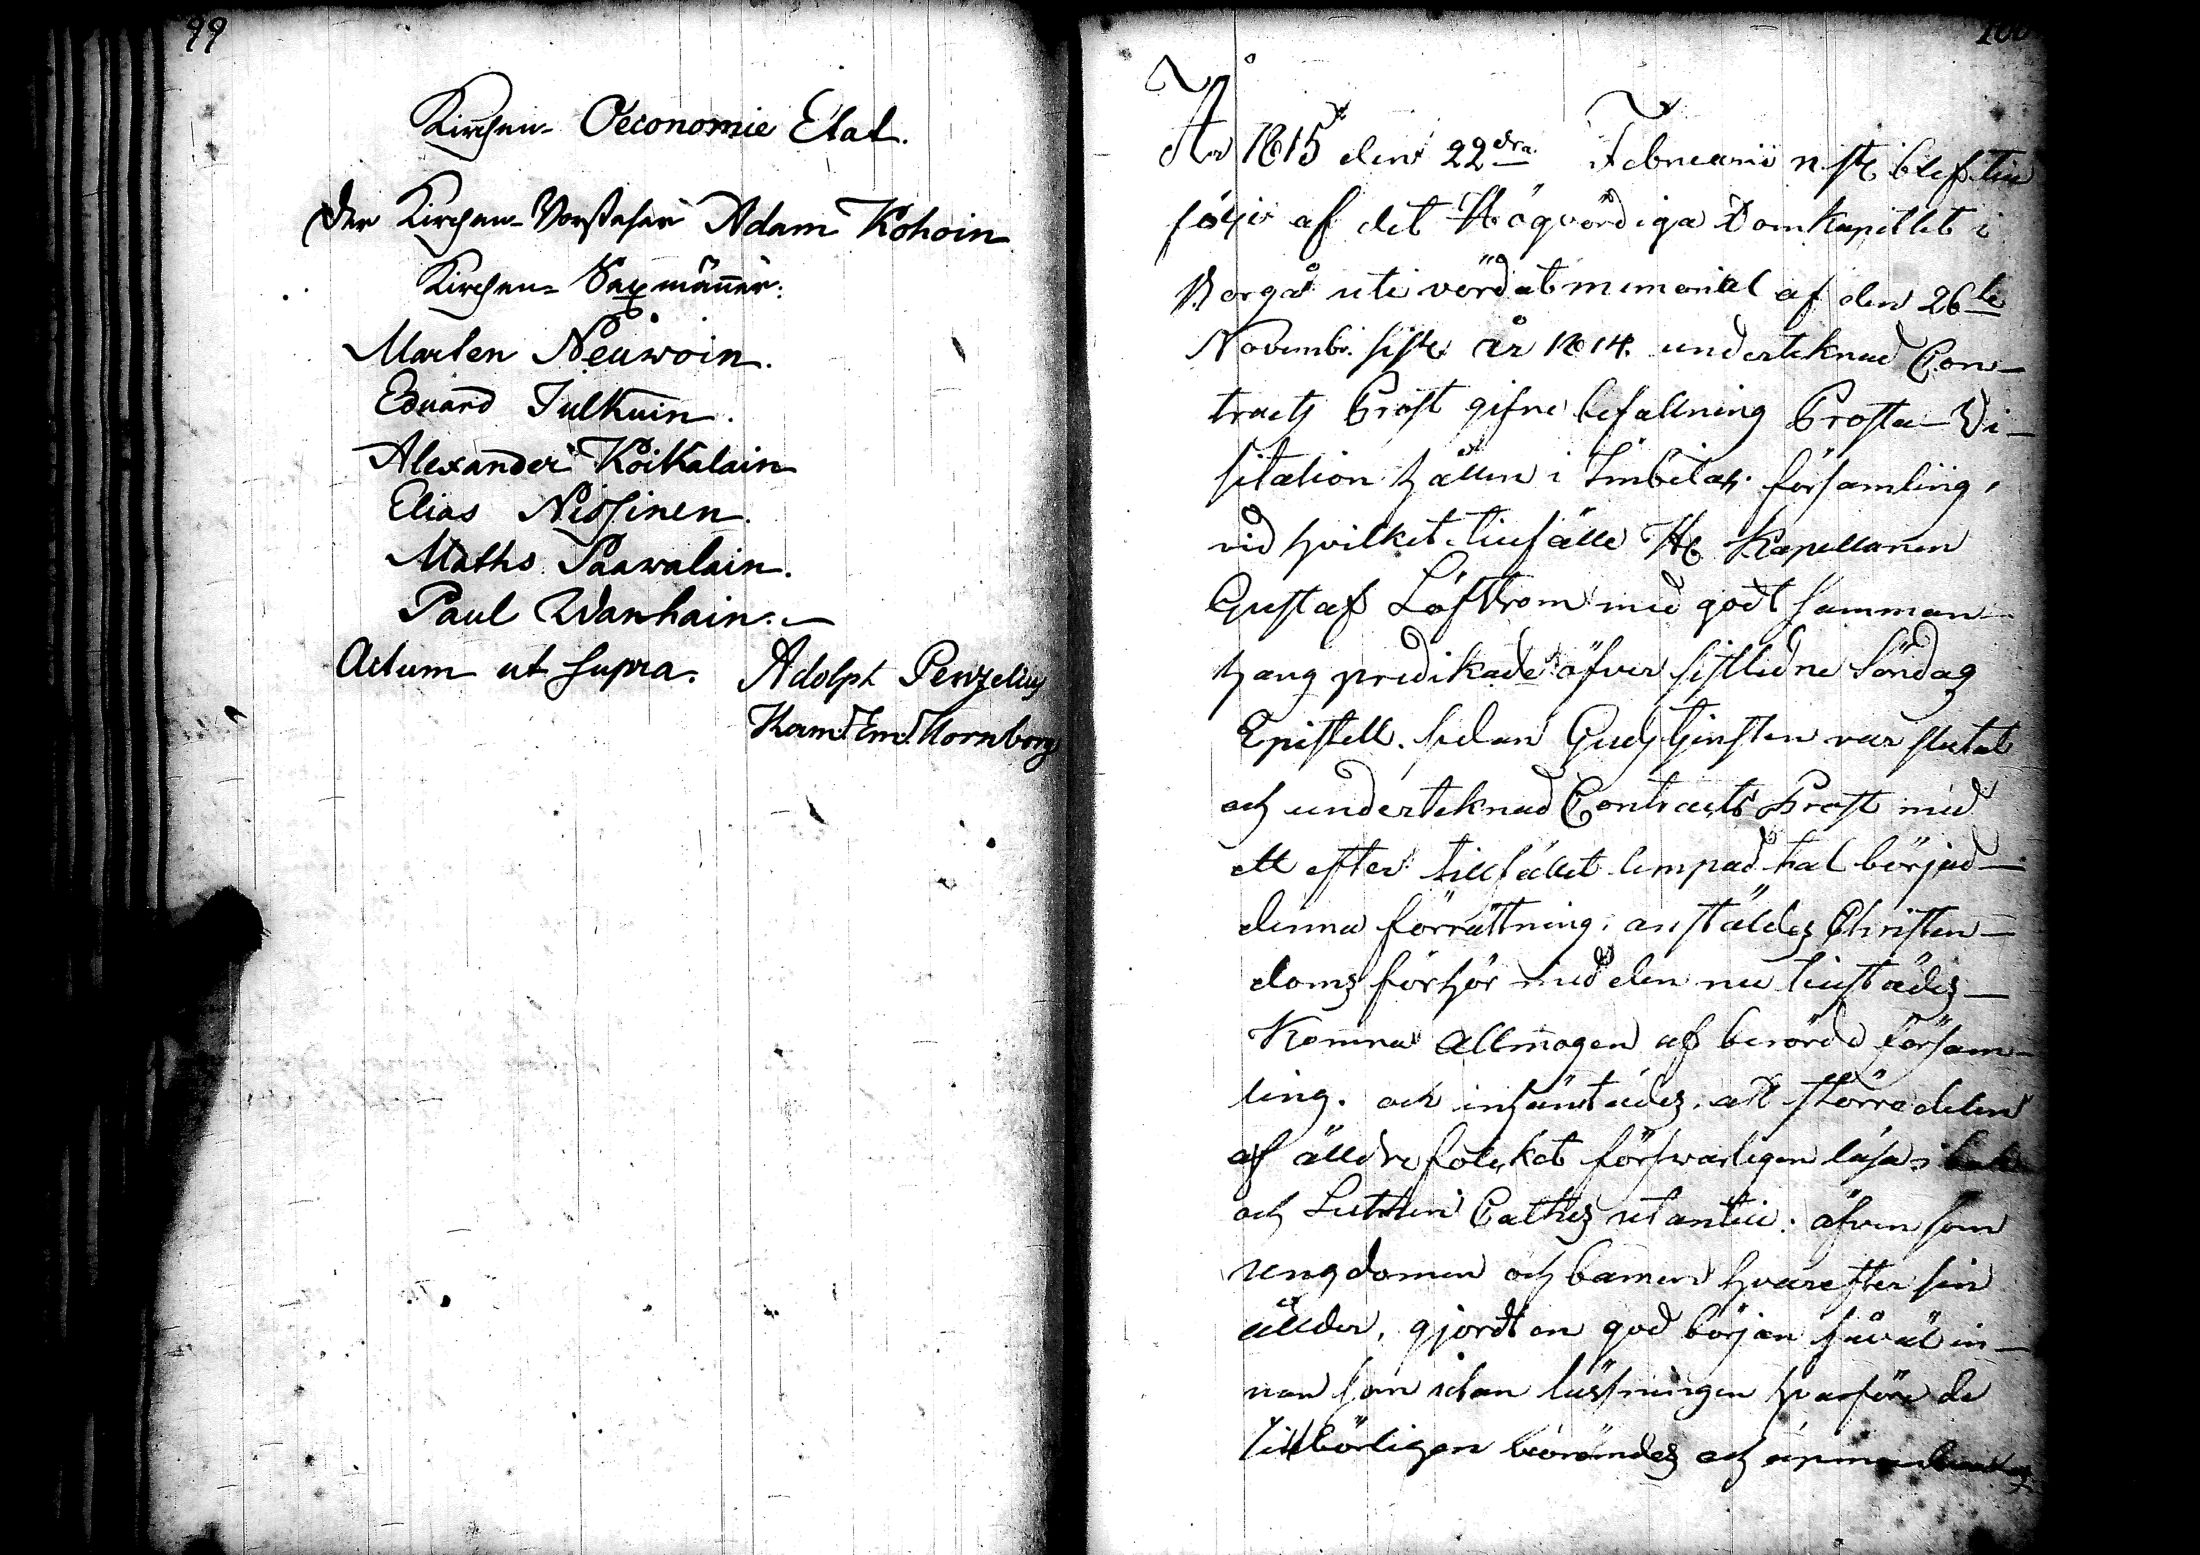 99
Kirchen- Oeconomie Etat.
Der Kirchen-Vorsteher Adam Kohoin
Kirchen- Sexmänner:
Marten Neuwoin.
Eduard Julkuin.
Alexander Koikalain
Elias Nissinen.
Maths Paawalain.
Paul Wanhain.
Actum ut supra. Adolph Penzelius
Kornborg
100
År 1815 den 22dra Februarii n. st. blef till
följe af det Högvördiga Domkapitlet i
Borgå uti vördat memorial af den 26te
Novembr. sistl. år 1814. underteknad Con-
tracts Prost gifne befallning Prosta-Vi-
sitation hållen i Imbilax församling,
vid hvilket tillfälle Hr Kapellanen
Gustaf Löfstrom med godt samman-
hang predikade öfver sistledne Söndag
Epistell. sedan Gudstjensten var slutat
och underteknad Contracts Prost med
ett efter tillfället lempad tal börjad
denna förrättning, anstäldes Christen-
doms förhör med den nu tillstädes-
komna allmogen af berörde försam-
ling. och inhämtades, att större delen
af älldre folcket försvarligen läsa i
och Lutheri Cathes utantill: äfven som
ungdomen och barnen hvar efter sin
ållder, gjordt en god början såväl in-
nan som utan läsningen hvarföre de
tillbörligen berömdes och